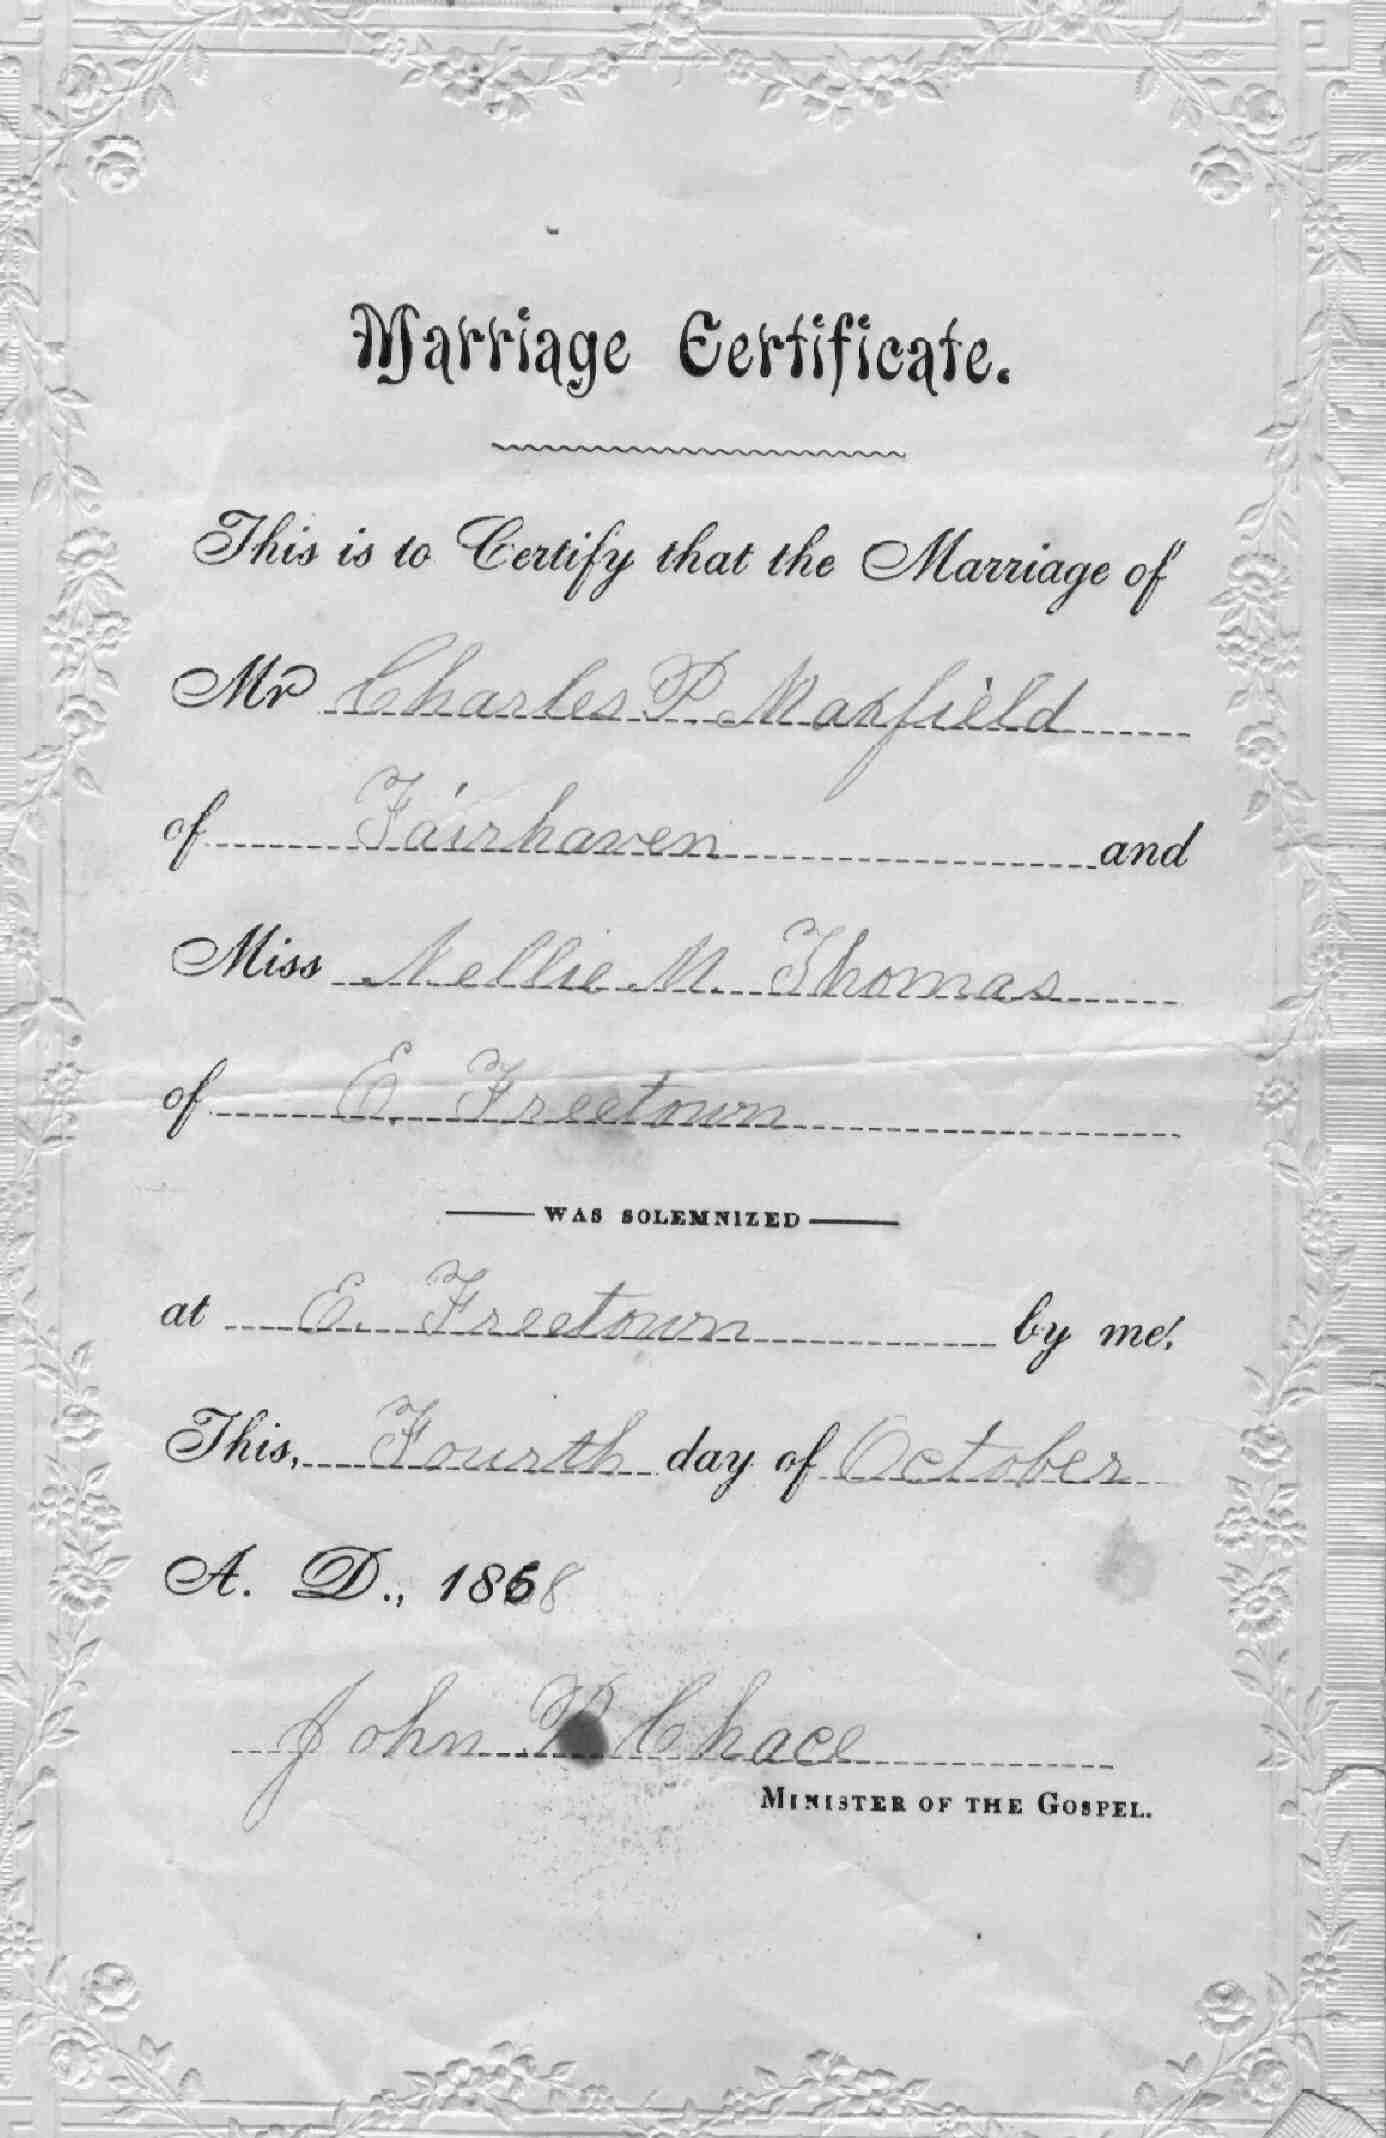 Marriage Certificate.
This is to Certify that the Marriage of
Mr Charles P Maxfield
of Fairhaven and
Miss Nellie M. Thomas
of E. Freetown
WAS SOLEMNIZED
at E. Freetown by me.
This, Fourth day of October
A. D., 1868
John Chace
MINISTER OF THE GOSPEL.